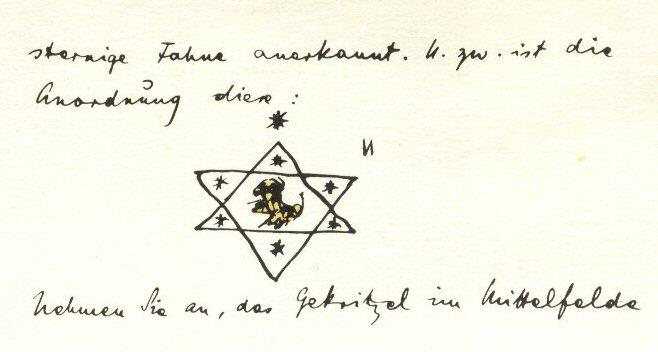 sternige Fahne anerkannt. U. zw. ist die
Anordnung diese:
Nehmen Sie an, das Gekritzel im Mittelfelde